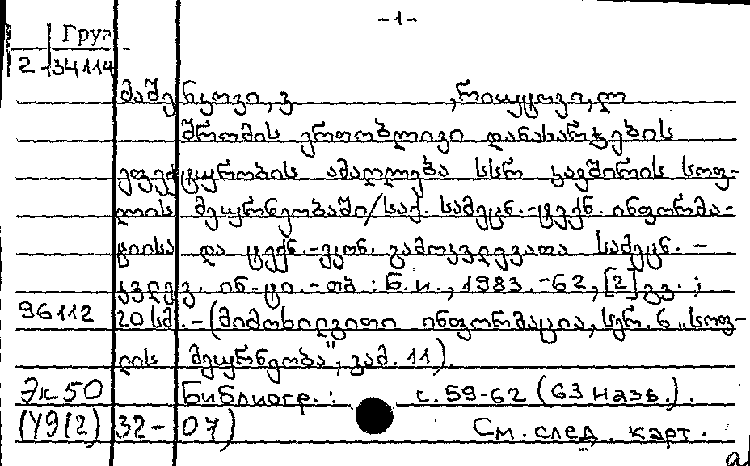 -1-
Груз
2-34114
მაშენკოვი, ვ , რიუტოვი, ლ
შრომის ერთობლივი დანახარჯების
ეფექტურობის ამაღლება სსრ კავშირის სოფ-
ლის მეურნეობაში/საქ. სამეცნ.-ტექნ. ინფორმა-
ციისა და ტექნ.-ეკონ. გამოკვლევათა სამეცნ.-
კვლევ. ინ-ტი.-თბ.: Б.и., 1983.-62, [2] გვ.;
96112 20 სმ.-(მიმოხილვითი ინფორმაცია, სერ. 6 „სოფ-
ლის მეურნეობა", გამ. 11).
Эк50 Библиогр.: с. 59-62 (63 назв.).
(У9(2)32-07) См. след. карт.